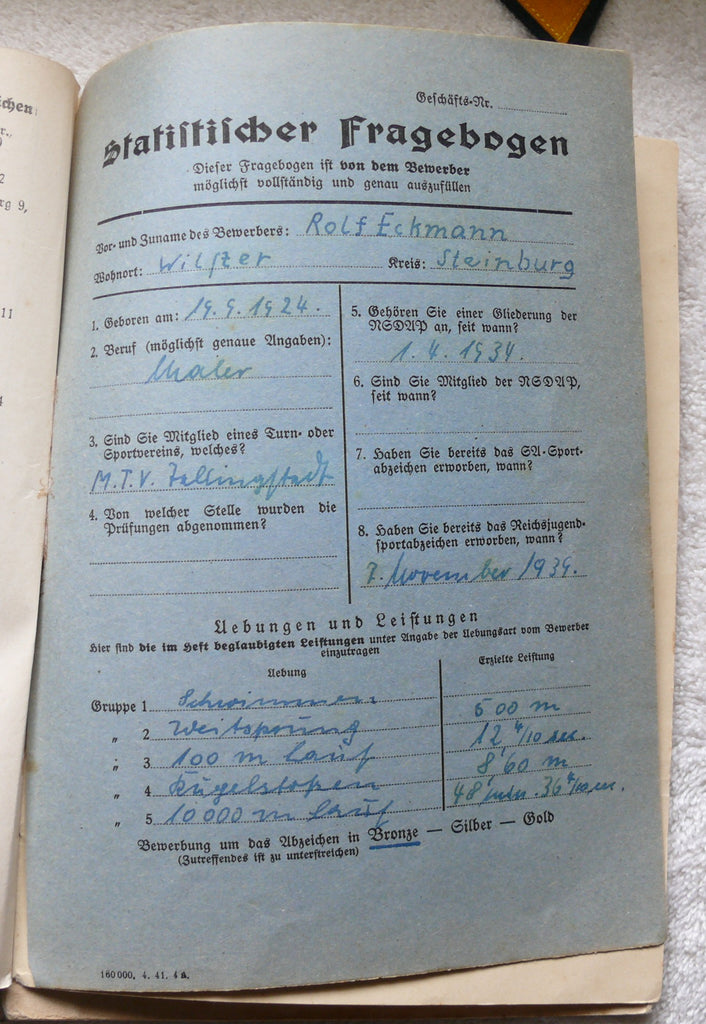 chen
r.,
2
rg 9,
11
4
Geschäfts-Nr.
Statistischer Fragebogen
Dieser Fragebogen ist von dem Bewerber
möglichst vollständig und genau auszufüllen
Vor- und Zuname des Bewerbers: Rolf Eckmann
Wohnort: Wilster Kreis: Steinburg
1. Geboren am: 19. 9. 1924.
2. Beruf (möglichst genaue Angaben):
Maler
3. Sind Sie Mitglied eines Turn- oder
Sportvereins, welches?
M.T.V.
4. Von welcher Stelle wurden die
Prüfungen abgenommen?
5. Gehören Sie einer Gliederung der
NSDAP an, seit wann?
1. 4. 1934.
6. Sind Sie Mitglied der NSDAP,
seit wann?
7. Haben Sie bereits das SA-Sport-
abzeichen erworben, wann?
8. Haben Sie bereits das Reichsjugend-
sportabzeichen erworben, wann?
7. November 1939.
Uebungen und Leistungen
Hier sind die im Heft beglaubigten Leistungen unter Angabe der Uebungsart vom Bewerber
einzutragen
Uebung Erzielte Leistung
Gruppe 1 Schwimmen
„ 2 Weitsprung 500 m
„ 3 100 m Lauf 12 4/10 sec.
„ 4 Kugelstoßen 8'60 m
„ 5 10 000 m Lauf 48 min. 36 4/10 sec.
Bewerbung um das Abzeichen in Bronze — Silber — Gold
(Zutreffendes ist zu unterstreichen)
160 000. 4. 41. 4a.